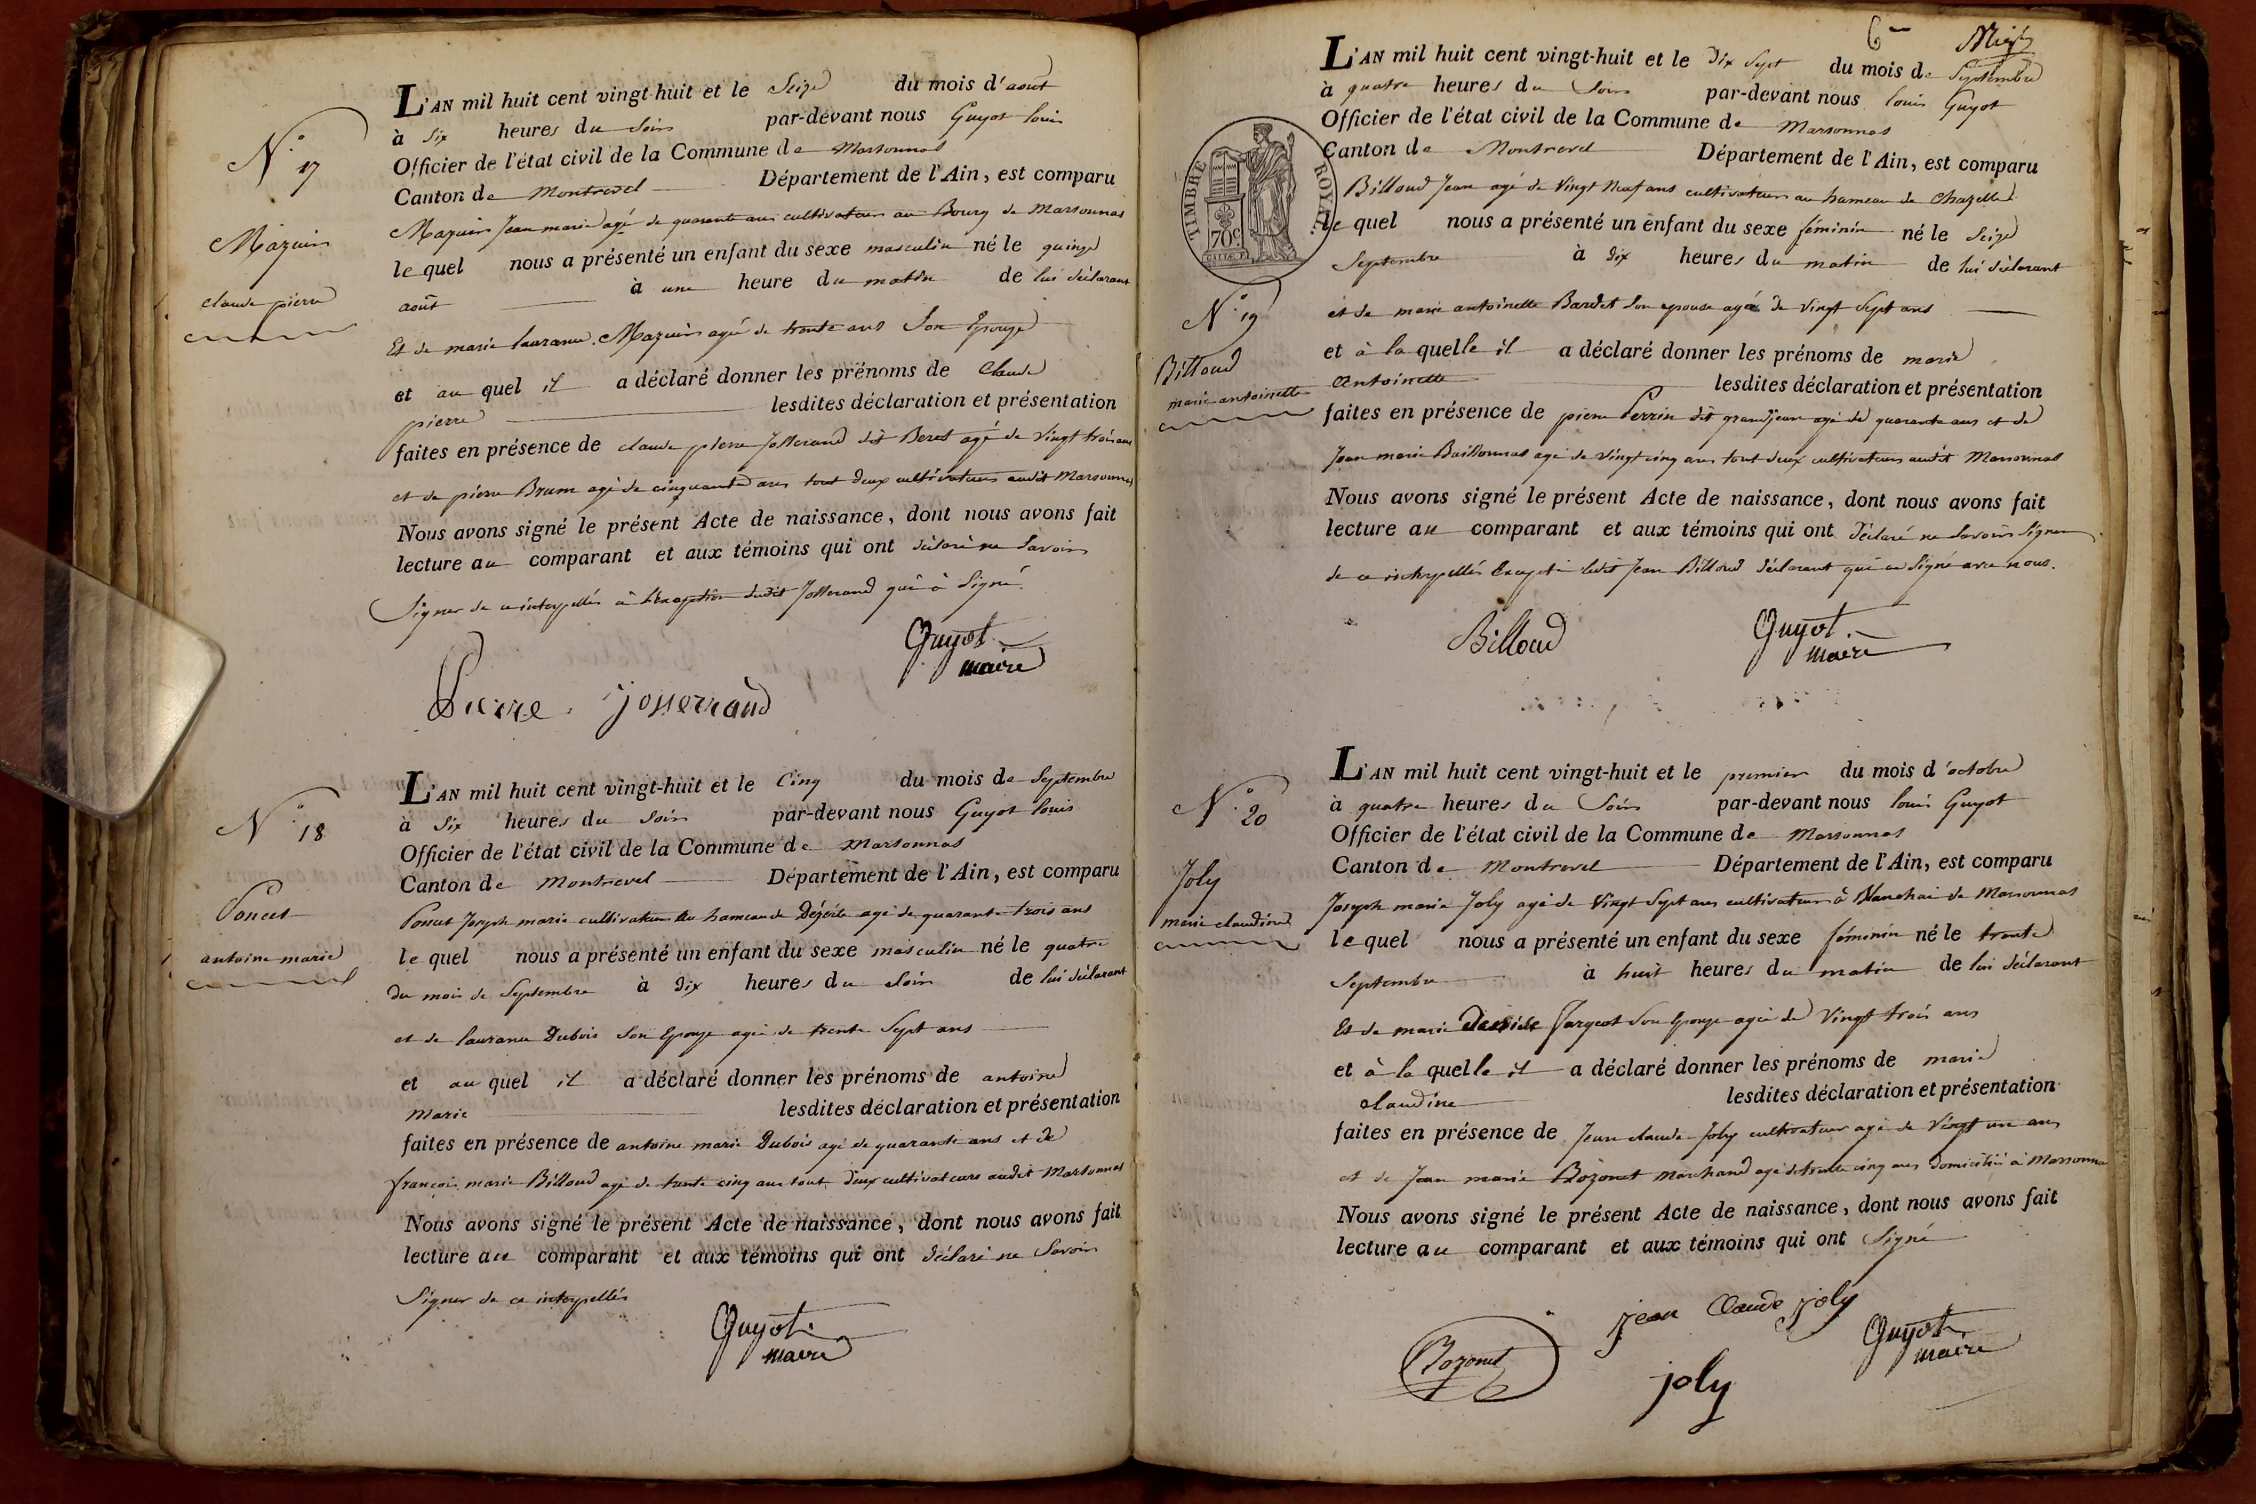 N.° 17
Mazuir
claude pierre
L'AN mil huit cent vingt-huit et le Seize du mois d'août
à Six heures du Soir par-devant nous Guyot louis
Officier de l'état civil de la Commune de Marsonnas
Canton de Montrevel Département de l'Ain, est comparu
Mazuir Jean marie agé de quarante ans cultivateur au Bourg de Marsonnas
le quel nous a présenté un enfant du sexe masculin né le quinze
août à une heure du matin de lui déclarant
Et de marie lauranne Mazuir agée de trente ans Son Epouze
et au quel il a déclaré donner les prénoms de Claude
pierre lesdites déclaration et présentation
faites en présence de claude pierre Josserand dit Beret agé de Vingt trois ans
et de pierre Brum agé de cinquante ans tout deux cultivateurs audit Marsonnas
Nous avons signé le présent Acte de naissance, dont nous avons fait
lecture au comparant et aux témoins qui ont déclaré ne Savoir
Signer de ce interpellés à l'Exception dudit Josserand qui à Signé.
Guyot
maire
Pierre Josserrand
N.° 18
Poncet
antoine marie
L'AN mil huit cent vingt-huit et le Cinq du mois de Septembre
à Six heures du Soir par-devant nous Guyot louis
Officier de l'état civil de la Commune de Marsonnas
Canton de Montrevel Département de l'Ain, est comparu
Poncet Joseph marie cultivateur au hameau de Dézérte agé de quarante trois ans
le quel nous a présenté un enfant du sexe masculin né le quatre
du mois de Septembre à dix heures du Soir de lui déclarant
et de lauranne Dubois Son Epouze agée de trente Sept ans
et au quel il a déclaré donner les prénoms de antoine
Marie lesdites déclaration et présentation
faites en présence de antoine marie Dubois agé de quarante ans et de
françois marie Billoud agé de trente cinq ans tout deux cultivateurs audit Marsonnas
Nous avons signé le présent Acte de naissance, dont nous avons fait
lecture au comparant et aux témoins qui ont déclaré ne Savoir
Signer de ce interpellés
Guyot
maire
6
TIMBRE ROYAL
70c
N.° 19
Billoud
marie antoinette
L'AN mil huit cent vingt-huit et le dix Sept du mois de Septembre
à quatre heures du Soir par-devant nous louis Guyot
Officier de l'état civil de la Commune de Marsonnas
Canton de Montrevel Département de l'Ain, est comparu
Billoud Jean agé de Vingt Neuf ans cultivateur au hameau de Chazelle
le quel nous a présenté un enfant du sexe féminin né le Seize
Septembre à dix heures du matin de lui déclarant
et de marie antoinette Bardet Son epouse agée de Vingt Sept ans
et à la quelle il a déclaré donner les prénoms de marie
Antoinette lesdites déclaration et présentation
faites en présence de pierre Perrin dit grandjean agé de quarante ans et de
Jean marie Baillonnas agé de Vingt cinq ans tout deux cultivateurs audit Marsonnas
Nous avons signé le présent Acte de naissance, dont nous avons fait
lecture au comparant et aux témoins qui ont déclaré ne Savoir Signer
de ce interpellés Excepté ledit Jean Billoud déclarant qui a Signé avec nous.
Billoud
Guyot
maire
N.° 20
Joly
marie claudine
L'AN mil huit cent vingt-huit et le premier du mois d'octobre
à quatre heures du Soir par-devant nous louis Guyot
Officier de l'état civil de la Commune de Marsonnas
Canton de Montrevel Département de l'Ain, est comparu
Joseph marie Joly agé de Vingt Sept ans cultivateur à de Marsonnas
le quel nous a présenté un enfant du sexe féminin né le trente
Septembre à huit heures du matin de lui déclarant
Et de marie Fargeot Son Epouze agée de Vingt trois ans
et à la quelle il a déclaré donner les prénoms de marie
claudine lesdites déclaration et présentation
faites en présence de Jean claude Joly cultivateur agé de Vingt un ans
et de Jean marie Bozonet Marchand agé de trente cinq ans domiciliés à Marsonnas
Nous avons signé le présent Acte de naissance, dont nous avons fait
lecture au comparant et aux témoins qui ont Signé
jean Claude joly
Guyot
maire
Bozonet
joly